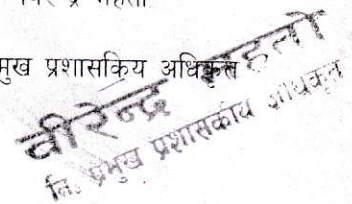 मुख प्रशासकिय अधिकृत
वीरेन्द्र महतो
नि. प्रमुख प्रशासकीय अधिकृत